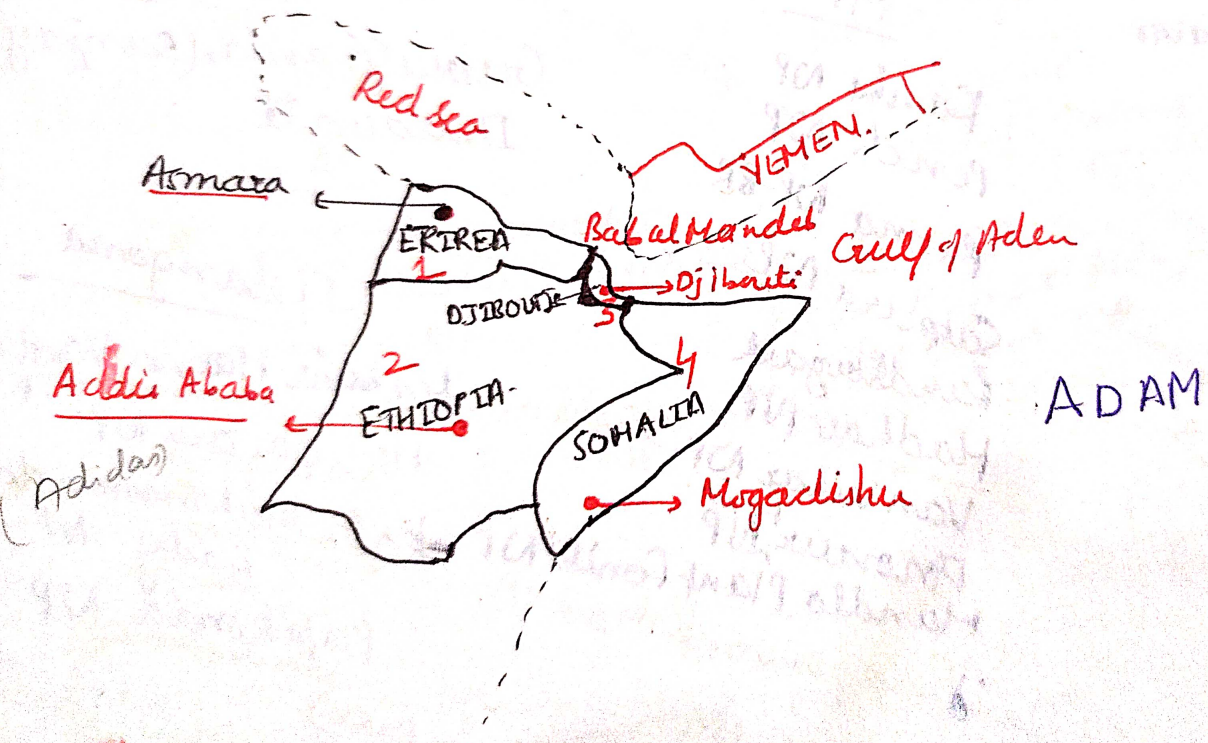 Red sea
YEMEN.
Asmara
ERIREA
1
Bab al Mandeb
Gulf of Aden
Djibouti
DJIBOUTI
3
2
4
Addis Ababa
ETHIOPIA
SOMALIA
ADAM
(Adidas)
Mogadishu